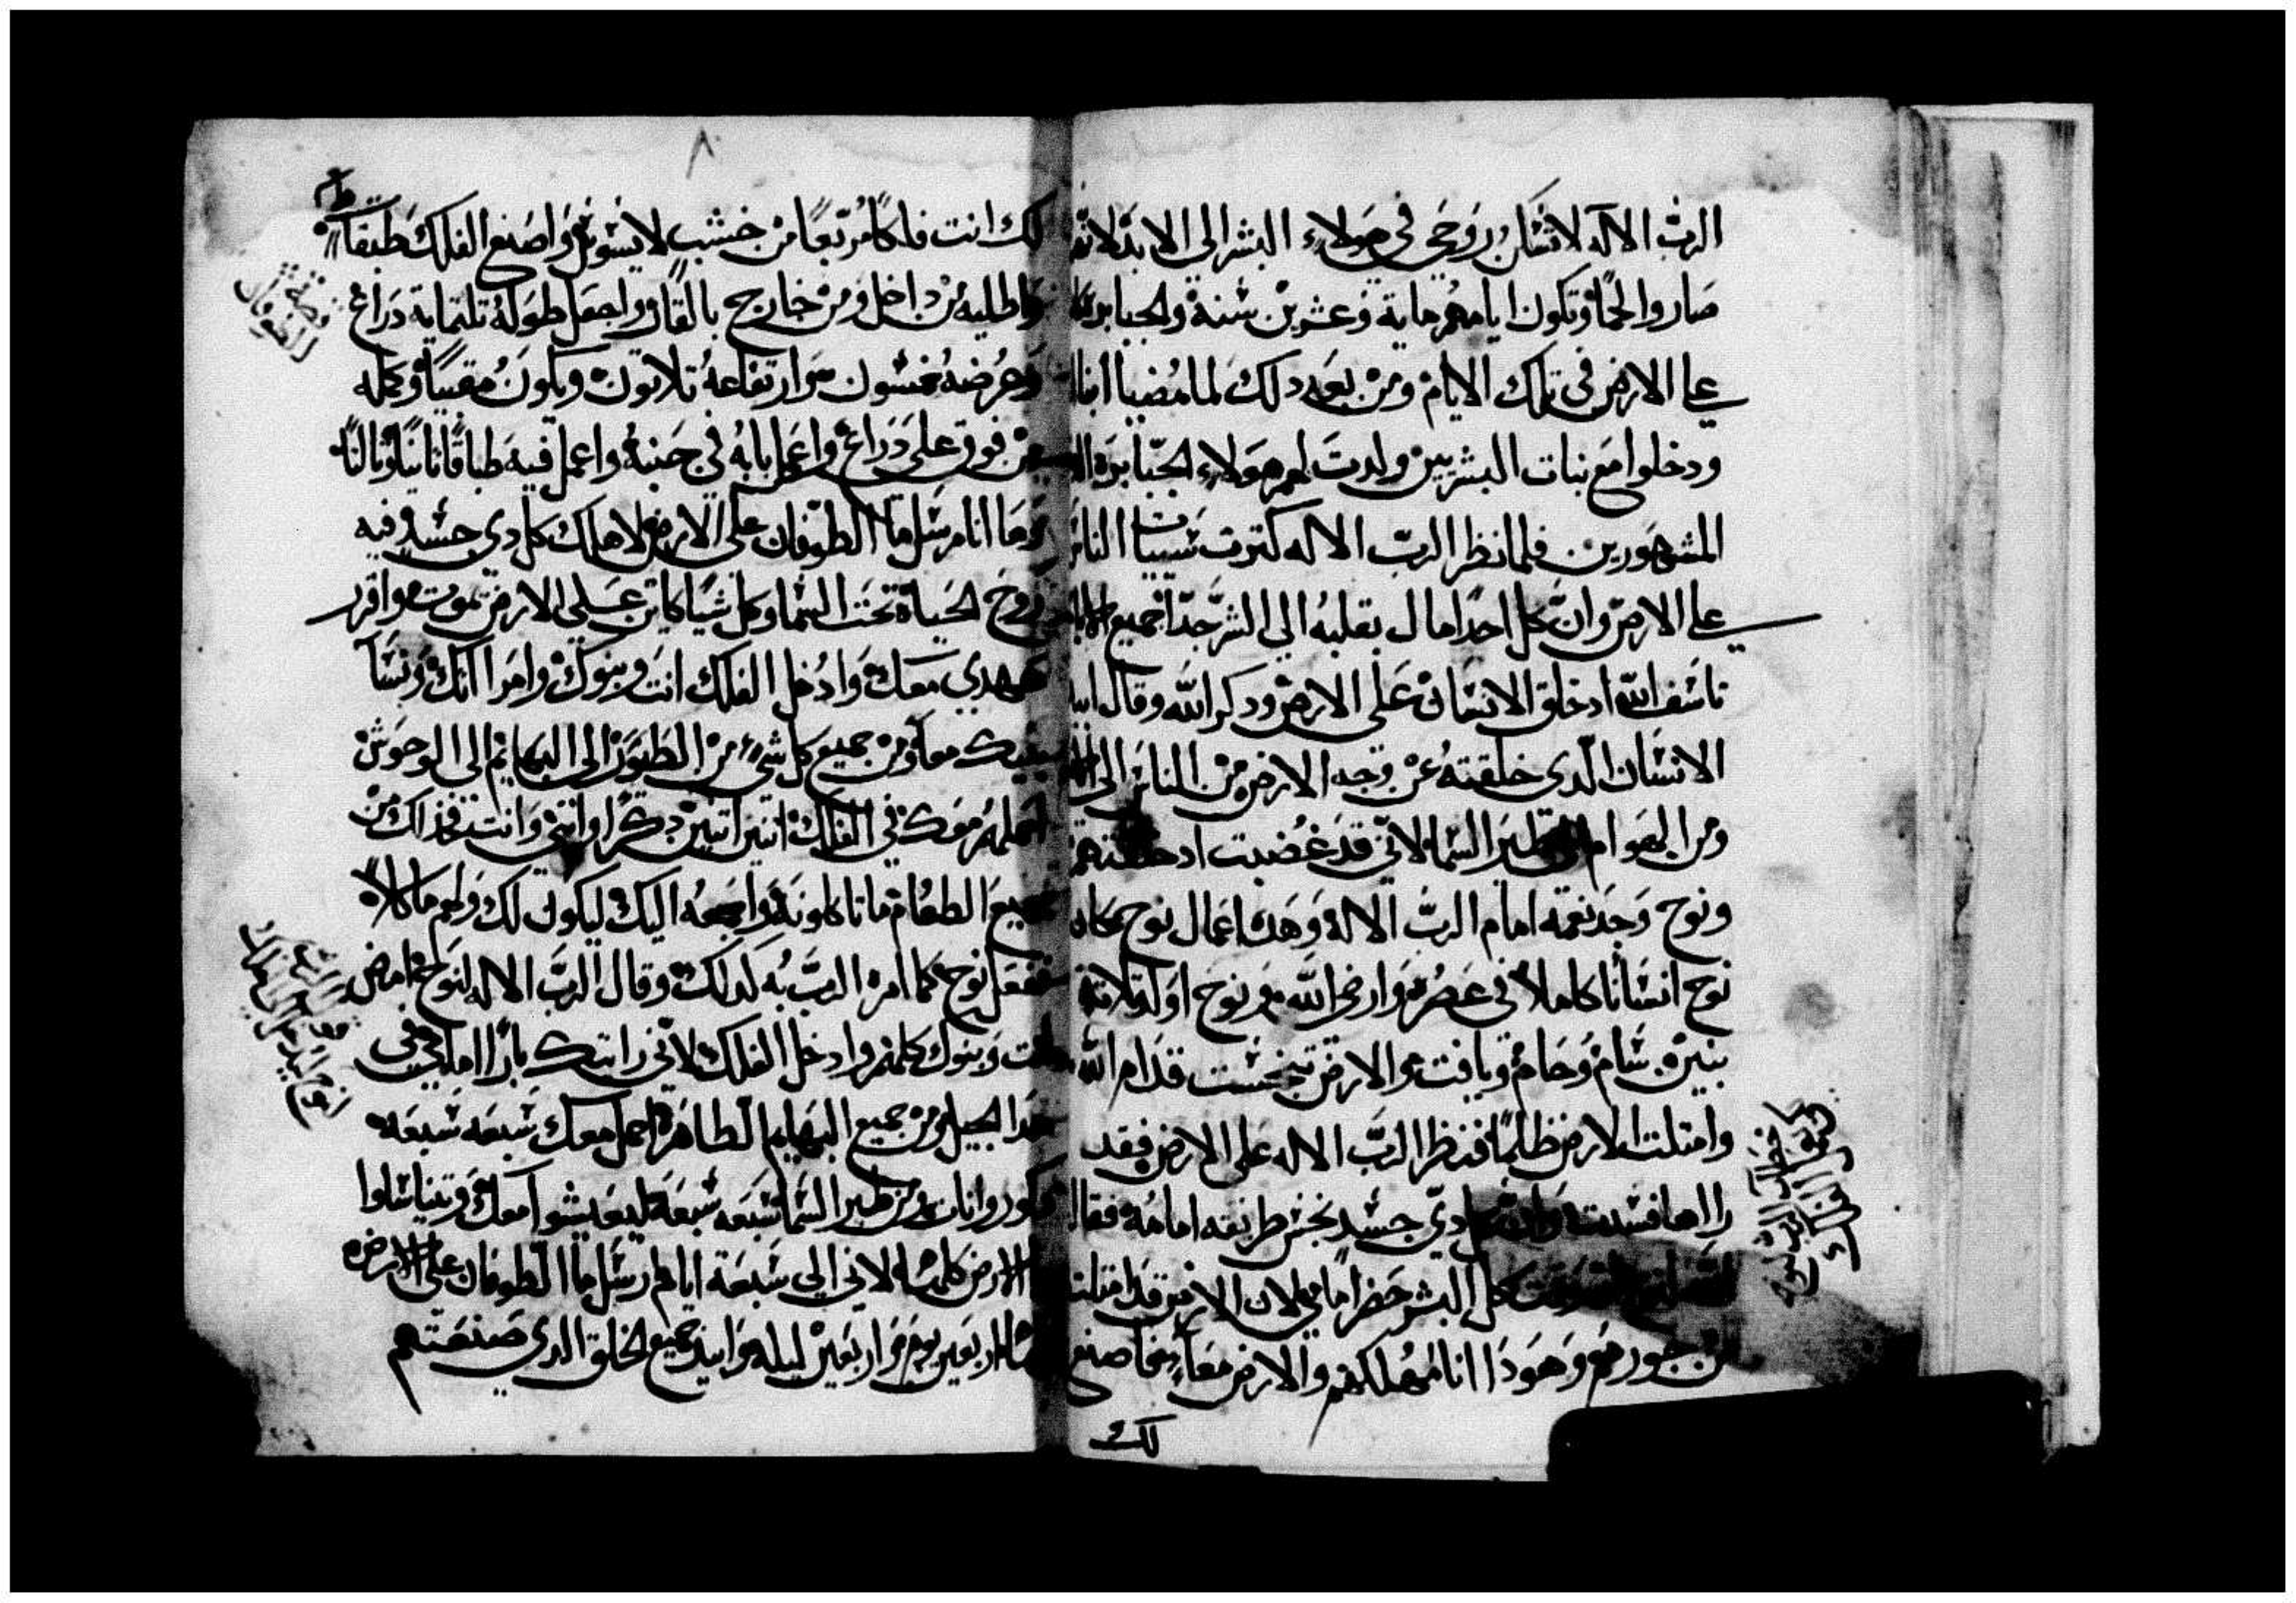 الربّ الاله لا تسكن روحي في هولاء البشر الى الابد لانهم
صاروا لحمًا وتكون ايامهم ماية وعشرين سنة والجبابرة كانوا
على الارض في تلك الايام ومن بعد دلك لما مضيا ابنا
ودخلوا مع بنات البشريين ولدت لهم هولاء الجبابره
المشهورين فلما نظر الربّ الاله كترت سيات الناس
على الارض وان كل احدًا مال بقلبه الى الشر جدّا جميع
تاسف الله اد خلق الانسان على الارض ودكر الله وقال ابيد
الانسان الدي خلقته عن وجه الارض من الناس الى
ومن الهوام طير السما لاني قد غضبت اد خلقتهم
ونوح وجد نعمه امام الربّ الاله وهده اعمال نوح كان
نوح انسانًا كاملا في عصره وارضى الله ونوح اولد تلاتة
بنين سام وحام ويافت والارض تنجست قدام الله
وامتلت الارض ظلمًا فنظر الربّ الاله على الارض فقد
راها فسدت دي جسد نجس طريقه امامه فقال
كل البشر حضر امامي لان الارض قد امتلت
من جورهم وهودا انا مهلكهم والارض معًا فاصنع
لك
٨
لك انت فلكًا مربّعًا من خشب لا يسوس واصنع الفلك طبقات
واطليه من داخل ومن خارج بالقار واجعل طوله تلتماية دراع
وعرضه خمسون وارتفاعه تلاتون ويكون مقببًا وكمله
من فوق على دراع واعمل بابه في جنبه واعمل فيه طباقًا تانيًا وتالتًا
وها انا مرسل ما الطوفان على الارض لاهلك كل دي جسد فيه
روح الحياة تحت السما وكل شيا كاين على الارض يموت واقرر
عهدي معك وادخل الفلك انت وبنوك وامراتك ونسا
بنيك معك ومن جميع كل شيء من الطيور الى البهايم الى الوحوش
احملهم معك في الفلك اتنين اتنين دكرًا وانتى وانت فخد لك من
جميع الطعام ما تاكلونه واجمعه اليك ليكون لك ولهم ماكلاً
ففعل نوح كما امره الربّ به كدلك وقال الربّ الاله لنوح امض
انت وبنوك كلهم وادخل الفلك لاني رايتك بارًا امامي في
هدا الجيل ومن جميع البهايم الطاهرة احمل معك سبعه سبعه
دكور وانات ومن طير السما سبعه سبعة ليعيشوا معك ويتناسلوا
الارض كلها لاني الى سبعة ايام ارسل ما الطوفان على الارض
اربعين يوم واربعين ليله وابيد جميع الخلق الدي صنعتهم
قصة
الطوفان